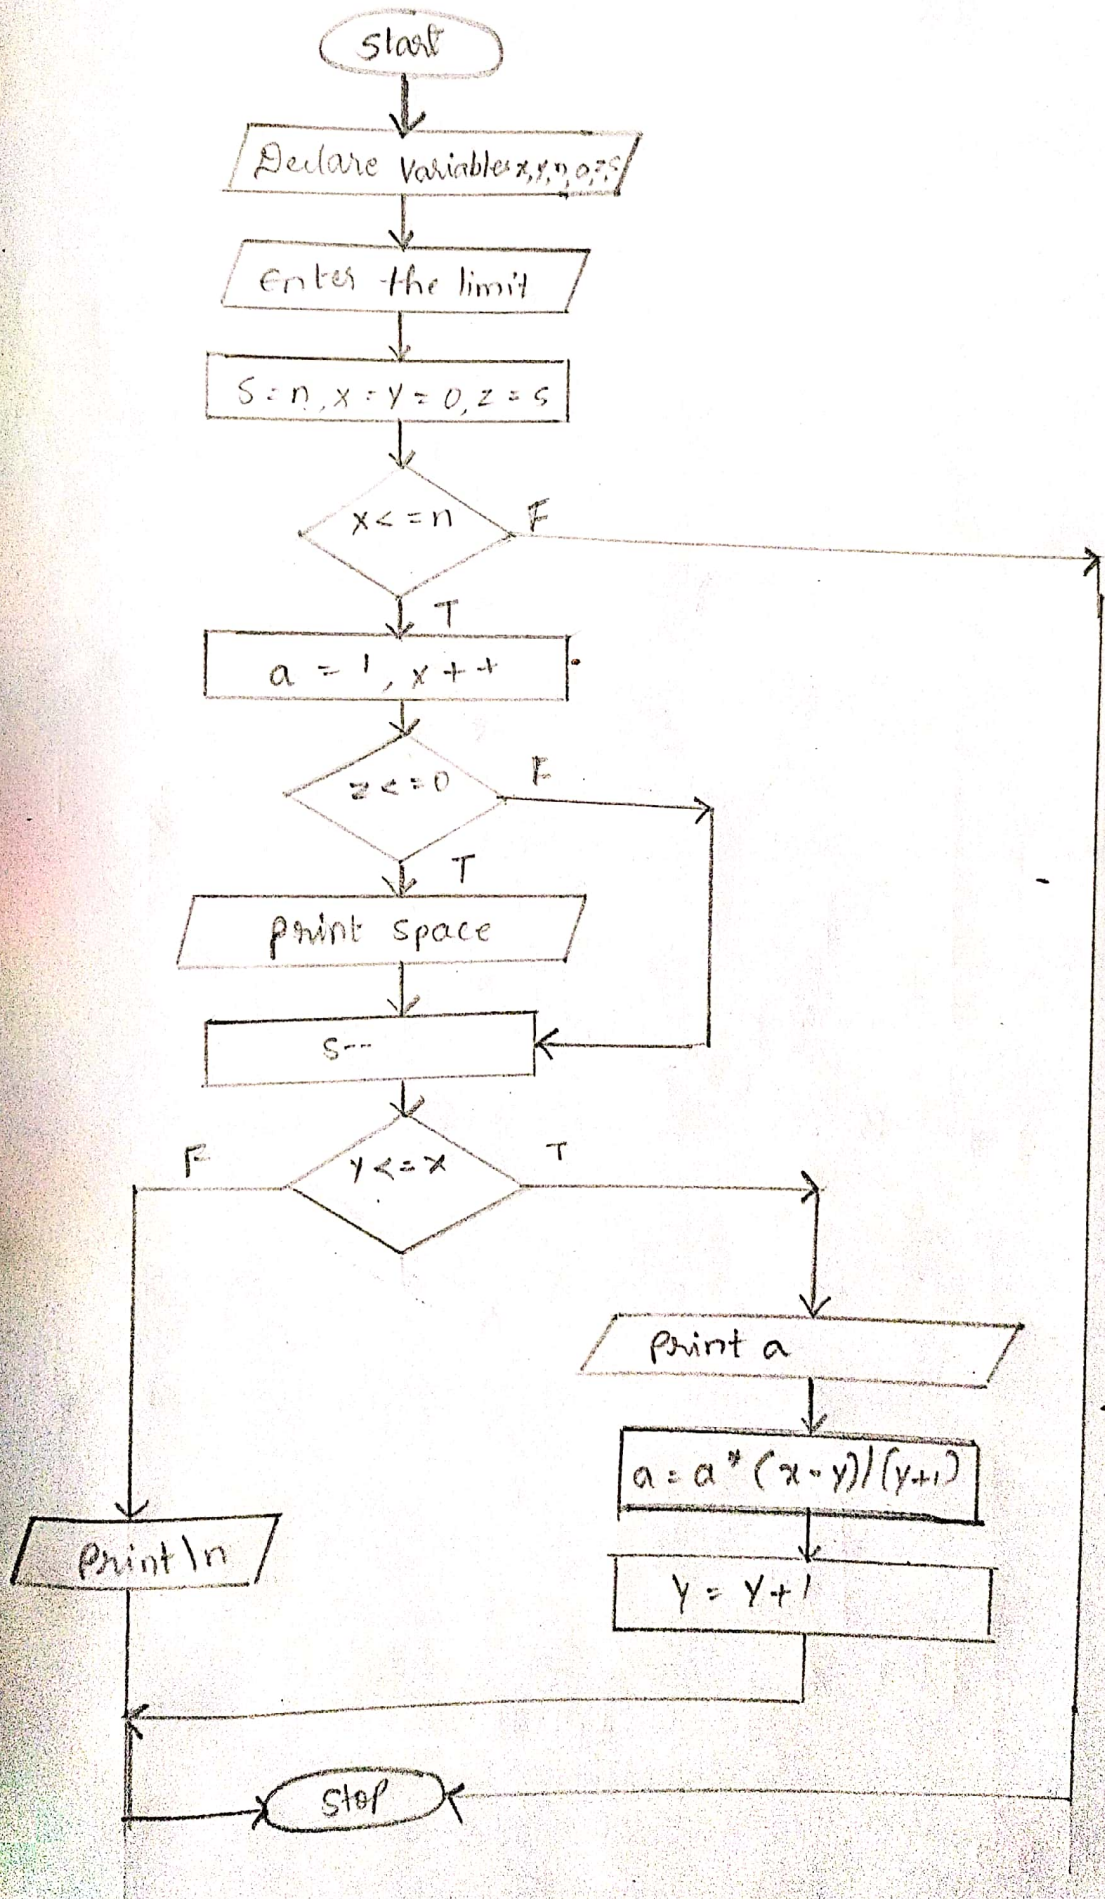 Start
Declare Variables x,y,n,a,z,s
Enter the limit
S=n, x=y=0, z=s
x<=n
F
T
a=1, x++
z<=0
F
T
print space
s--
F
y<=x
T
print a
a=a*(x-y)/(y+1)
print \n
y=y+1
Stop